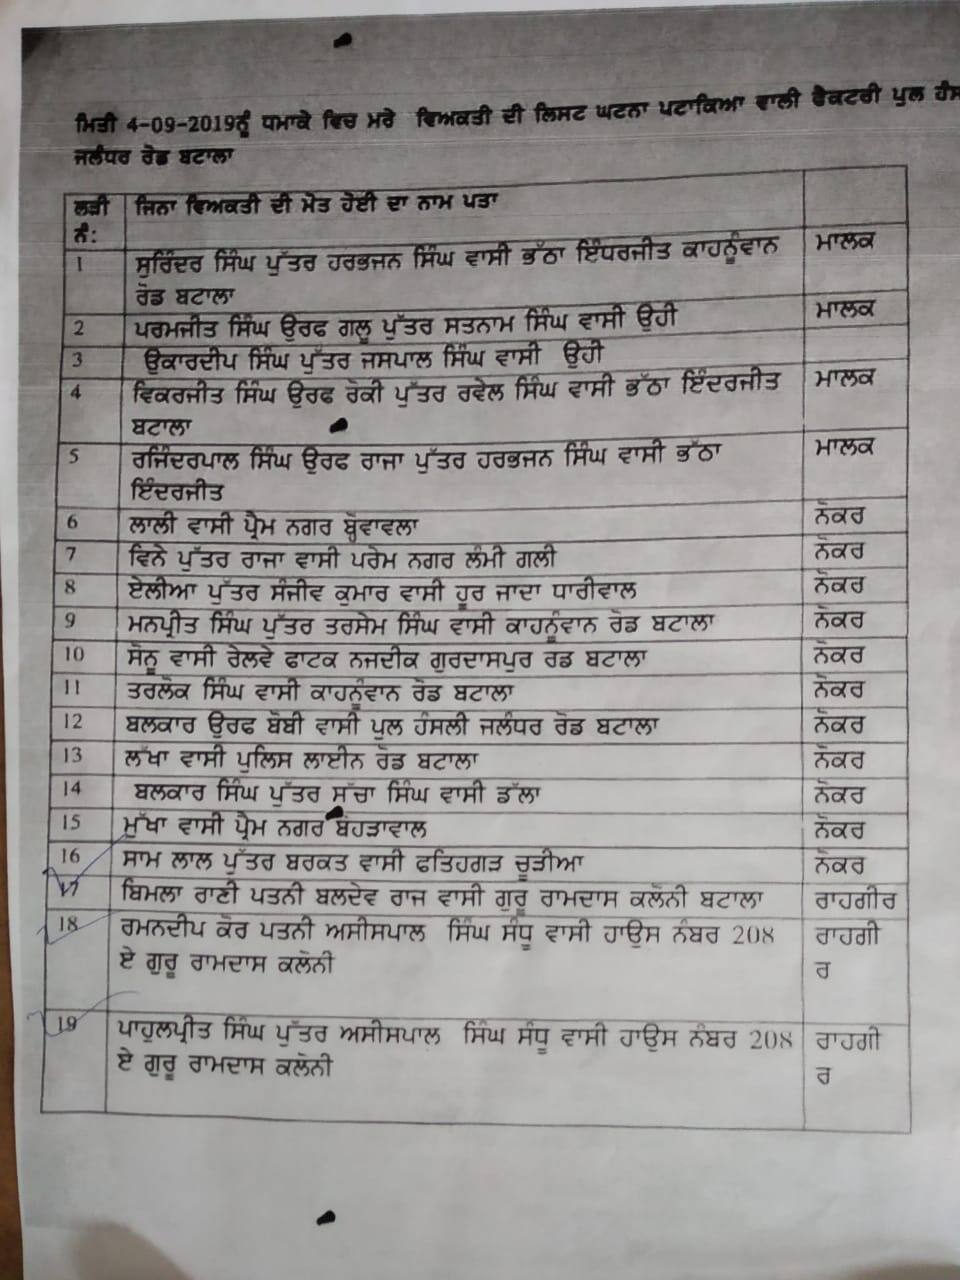 ਮਿਤੀ 4-09-2019ਨੂੰ ਧਮਾਕੇ ਵਿਚ ਮਰੇ ਵਿਅਕਤੀ ਦੀ ਲਿਸਟ ਘਟਨਾ ਪਟਾਕਿਆ ਵਾਲੀ ਫੈਕਟਰੀ ਪੁਲ
ਜਲੰਧਰ ਰੋਡ ਬਟਾਲਾ
ਲੜੀ ਜਿਨਾ ਵਿਅਕਤੀ ਦੀ ਮੋਤ ਹੋਈ ਦਾ ਨਾਮ ਪਤਾ
ਨੰ:
1 ਸੁਰਿੰਦਰ ਸਿੰਘ ਪੁੱਤਰ ਹਰਭਜਨ ਸਿੰਘ ਵਾਸੀ ਭੱਠਾ ਇੰਧਰਜੀਤ ਕਾਹਨੂੰਵਾਨ ਮਾਲਕ
ਰੋਡ ਬਟਾਲਾ
2 ਪਰਮਜੀਤ ਸਿੰਘ ਉਰਫ ਗਲੂ ਪੁੱਤਰ ਸਤਨਾਮ ਸਿੰਘ ਵਾਸੀ ਉਹੀ ਮਾਲਕ
3 ਉਕਾਰਦੀਪ ਸਿੰਘ ਪੁੱਤਰ ਜਸਪਾਲ ਸਿੰਘ ਵਾਸੀ ਉਹੀ
4 ਵਿਕਰਜੀਤ ਸਿੰਘ ਉਰਫ ਰੋਕੀ ਪੁੱਤਰ ਰਵੇਲ ਸਿੰਘ ਵਾਸੀ ਭੱਠਾ ਇੰਦਰਜੀਤ ਮਾਲਕ
ਬਟਾਲਾ
5 ਰਜਿੰਦਰਪਾਲ ਸਿੰਘ ਉਰਫ ਰਾਜਾ ਪੁੱਤਰ ਹਰਭਜਨ ਸਿੰਘ ਵਾਸੀ ਭੱਠਾ ਮਾਲਕ
ਇੰਦਰਜੀਤ
6 ਲਾਲੀ ਵਾਸੀ ਪ੍ਰੈਮ ਨਗਰ ਨੋਕਰ
7 ਵਿਨੇ ਪੁੱਤਰ ਰਾਜਾ ਵਾਸੀ ਪਰੇਮ ਨਗਰ ਲੰਮੀ ਗਲੀ ਨੋਕਰ
8 ਏਲੀਆ ਪੁੱਤਰ ਸੰਜੀਵ ਕੁਮਾਰ ਵਾਸੀ ਹੂਰ ਜਾਦਾ ਧਾਰੀਵਾਲ ਨੋਕਰ
9 ਮਨਪ੍ਰੀਤ ਸਿੰਘ ਪੁੱਤਰ ਤਰਸੇਮ ਸਿੰਘ ਵਾਸੀ ਕਾਹਨੂੰਵਾਨ ਰੋਡ ਬਟਾਲਾ ਨੋਕਰ
10 ਸੋਨੂ ਵਾਸੀ ਰੇਲਵੇ ਫਾਟਕ ਨਜਦੀਕ ਗੁਰਦਾਸਪੁਰ ਰਡ ਬਟਾਲਾ ਨੋਕਰ
11 ਤਰਲੋਕ ਸਿੰਘ ਵਾਸੀ ਕਾਹਨੂੰਵਾਨ ਰੋਡ ਬਟਾਲਾ ਨੋਕਰ
12 ਬਲਕਾਰ ਉਰਫ ਬੋਬੀ ਵਾਸੀ ਪੁਲ ਹੰਸਲੀ ਜਲੰਧਰ ਰੋਡ ਬਟਾਲਾ ਨੋਕਰ
13 ਲੱਖਾ ਵਾਸੀ ਪੁਲਿਸ ਲਾਈਨ ਰੋਡ ਬਟਾਲਾ ਨੋਕਰ
14 ਬਲਕਾਰ ਸਿੰਘ ਪੁੱਤਰ ਸੱਚਾ ਸਿੰਘ ਵਾਸੀ ਡੱਲਾ ਨੋਕਰ
15 ਮੁੱਖਾ ਵਾਸੀ ਪ੍ਰੈਮ ਨਗਰ ਬੋਹੜਾਵਾਲ ਨੋਕਰ
16 ਸਾਮ ਲਾਲ ਪੁੱਤਰ ਬਰਕਤ ਵਾਸੀ ਫਤਿਹਗੜ ਚੂੜੀਆ ਨੋਕਰ
17 ਬਿਮਲਾ ਰਾਣੀ ਪਤਨੀ ਬਲਦੇਵ ਰਾਜ ਵਾਸੀ ਗੁਰੂ ਰਾਮਦਾਸ ਕਲੋਨੀ ਬਟਾਲਾ ਰਾਹਗੀਰ
18 ਰਮਨਦੀਪ ਕੋਰ ਪਤਨੀ ਅਸੀਸਪਾਲ ਸਿੰਘ ਸੰਧੂ ਵਾਸੀ ਹਾਉਸ ਨੰਬਰ 208 ਰਾਹਗੀ
ਏ ਗੁਰੂ ਰਾਮਦਾਸ ਕਲੋਨੀ ਰ
19 ਪਾਹੁਲਪ੍ਰੀਤ ਸਿੰਘ ਪੁੱਤਰ ਅਸੀਸਪਾਲ ਸਿੰਘ ਸੰਧੂ ਵਾਸੀ ਹਾਉਸ ਨੰਬਰ 208 ਰਾਹਗੀ
ਏ ਗੁਰੂ ਰਾਮਦਾਸ ਕਲੋਨੀ ਰ